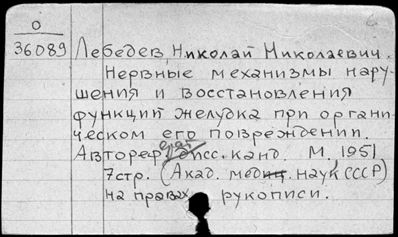 О
36089
Лебедев, Николай Николаевич.
Нервные механизмы нару-
шения и восстановления
функций желудка при органи-
ческом его повреждении.
Автореф. дисс. канд. М. 1951
7стр. (Акад. медиц. наук СССР)
на правах рукописи.